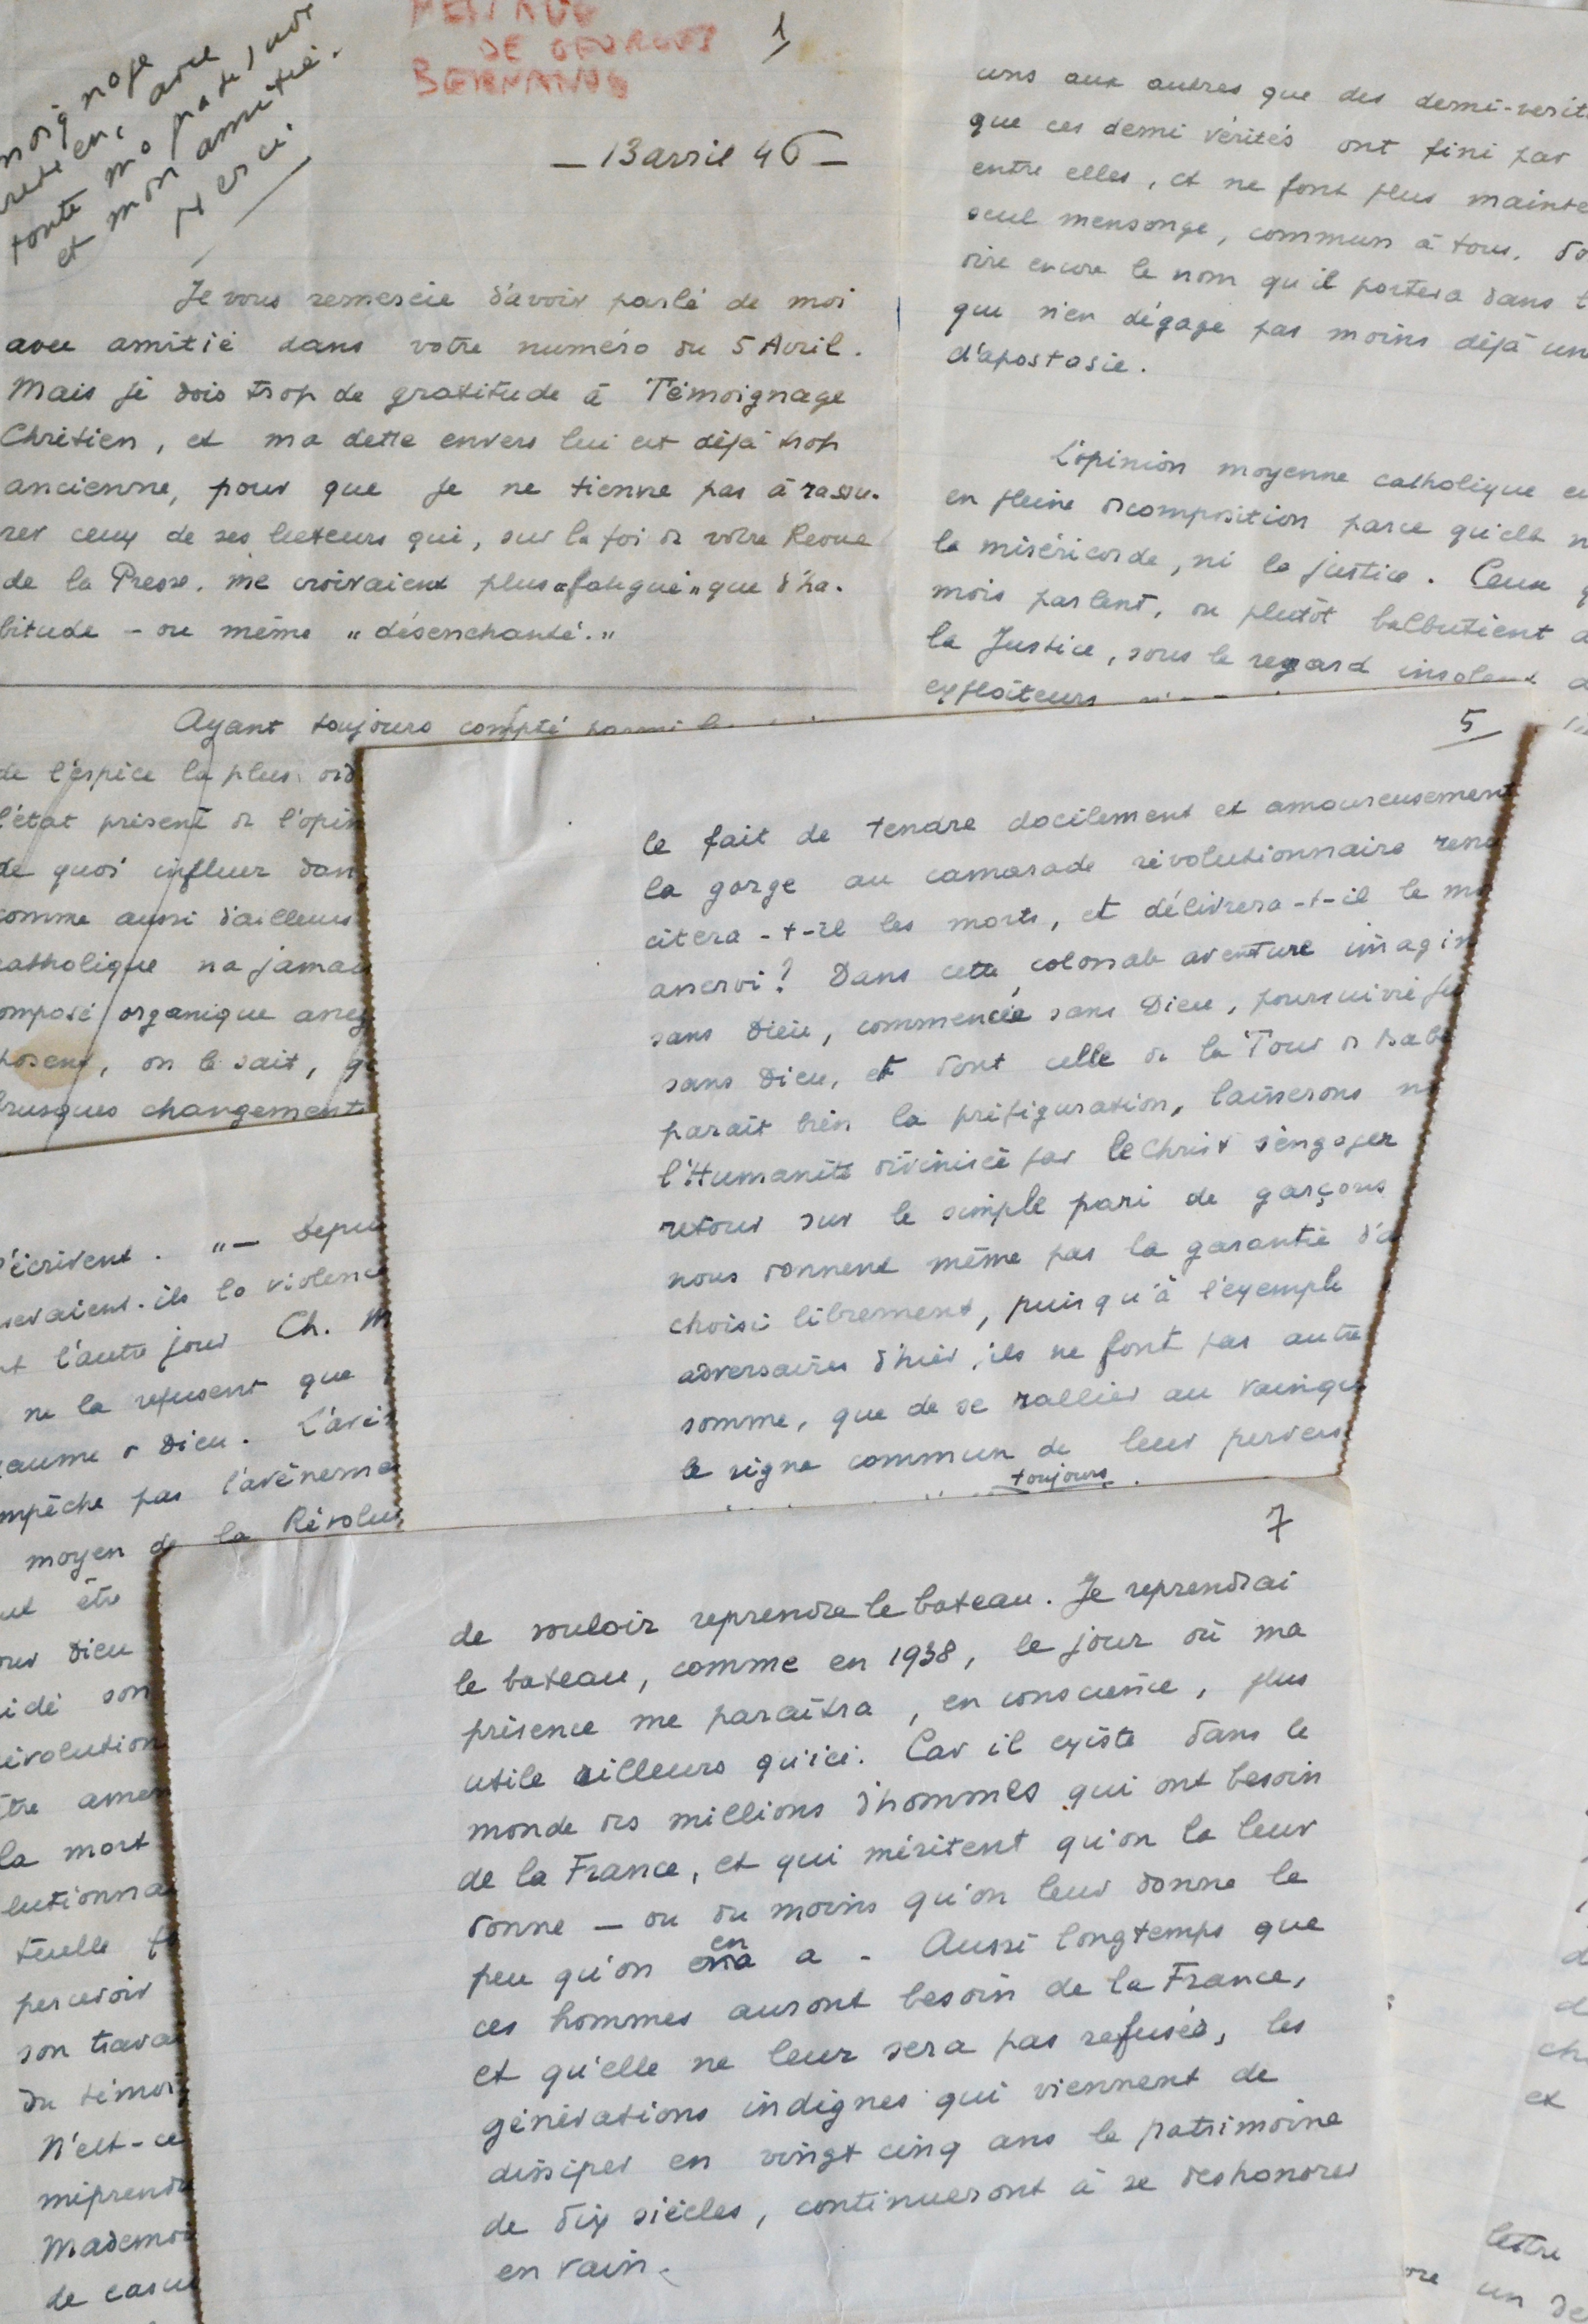 DE GEORGES
BERNANOS
1
toute ma
et mon amitié.
Merci.
— 13 avril 46 —
Je vous remercie d'avoir parlé de moi
avec amitié dans votre numéro du 5 Avril.
Mais je dois trop de gratitude à Témoignage
Chrétien, et ma dette envers lui est déjà trop
ancienne, pour que je ne tienne pas à rassu-
rer ceux de ses lecteurs qui, sur la foi de votre Revue
de la Presse, me croiraient plus "fatigué" que d'ha-
bitude – ou même "désenchanté."
Ayant toujours compté parmi
de l'espèce la plus ord
l'état présent de l'opin
de quoi influer dan
comme aussi d'ailleurs
catholique na jamai
omposé organique
posent, on le sait,
brusques changements
uns aux autres que des demi-verit
que ces demi vérités ont fini par
entre elles, et ne font plus mainte
seul mensonge, commun à tous.
dire encore le nom qu'il portera dans
que n'en dégage pas moins déjà un
d'apostasie.
L'opinion moyenne catholique
en pleine décomposition parce qu'elle n
la miséricorde, ni la justice. Ceux
mois parlent, ou plutôt balbutient
la Justice, sous le regard insolent
exploiteurs
écrivent. "— Depui
seraient-ils la violence
t l'autre jour Ch. M
ne la refusent que
aume de Dieu. L'avè
mpêche pas l'avèneme
moyen de la Révolu
ut être
our Dieu
idé son
évolution
tre amen
la mort
lutionna
tuelle
percevoir
son trava
du témoi
N'est-ce
méprendr
Mademoi
de casu
5
le fait de tendre docilement et amoureusement
la gorge au camarade révolutionnaire
citera-t-il les morts, et délivrera-t-il le mo
asservi? Dans cette colossale aventure imagin
sans Dieu, commencée sans Dieu, poursuivie
sans Dieu, et dont celle de la Tour de Babe
parait bien la préfiguration, laisserons n
l'Humanité divinisée par le Christ s'engager
retour sur le simple pari de garçons
nous donnent même pas la garantie d'a
choisi librement, puisqu'à l'exemple
adversaires d'hier, ils ne font pas autre
somme, que de se rallier au vainque
le signe commun de leur pervers
toujours
7
de vouloir reprendre le bateau. Je reprendrai
le bateau, comme en 1938, le jour où ma
présence me paraîtra, en conscience, plus
utile ailleurs qu'ici. Car il existe dans le
monde des millions d'hommes qui ont besoin
de la France, et qui méritent qu'on la leur
donne — ou du moins qu'on leur donne le
peu qu'on en a – Aussi longtemps que
ces hommes auront besoin de la France,
et qu'elle ne leur sera pas refusée, les
générations indignes qui viennent de
dissiper en vingt cinq ans le patrimoine
de dix siècles, continueront à se deshonorer
en vain.
et
lettre
un